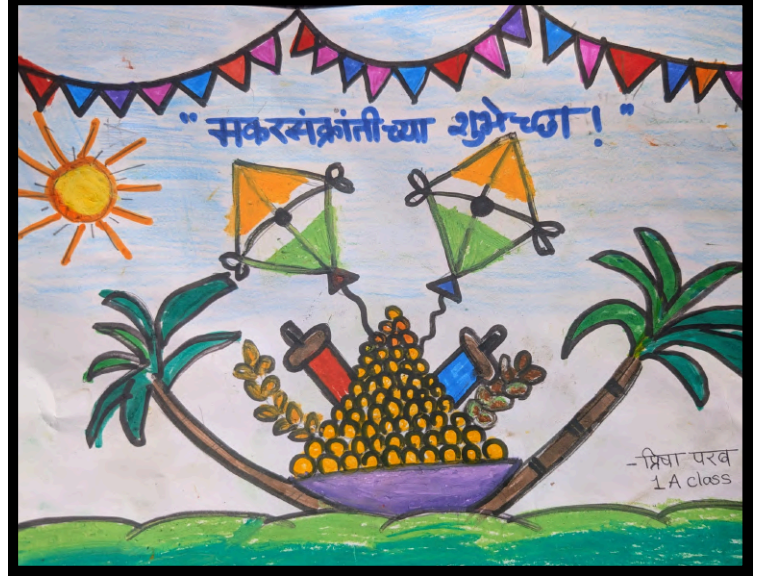 "मकरसंक्रांतीच्या शुभेच्छा ! "
- प्रिषा परब
1 A class